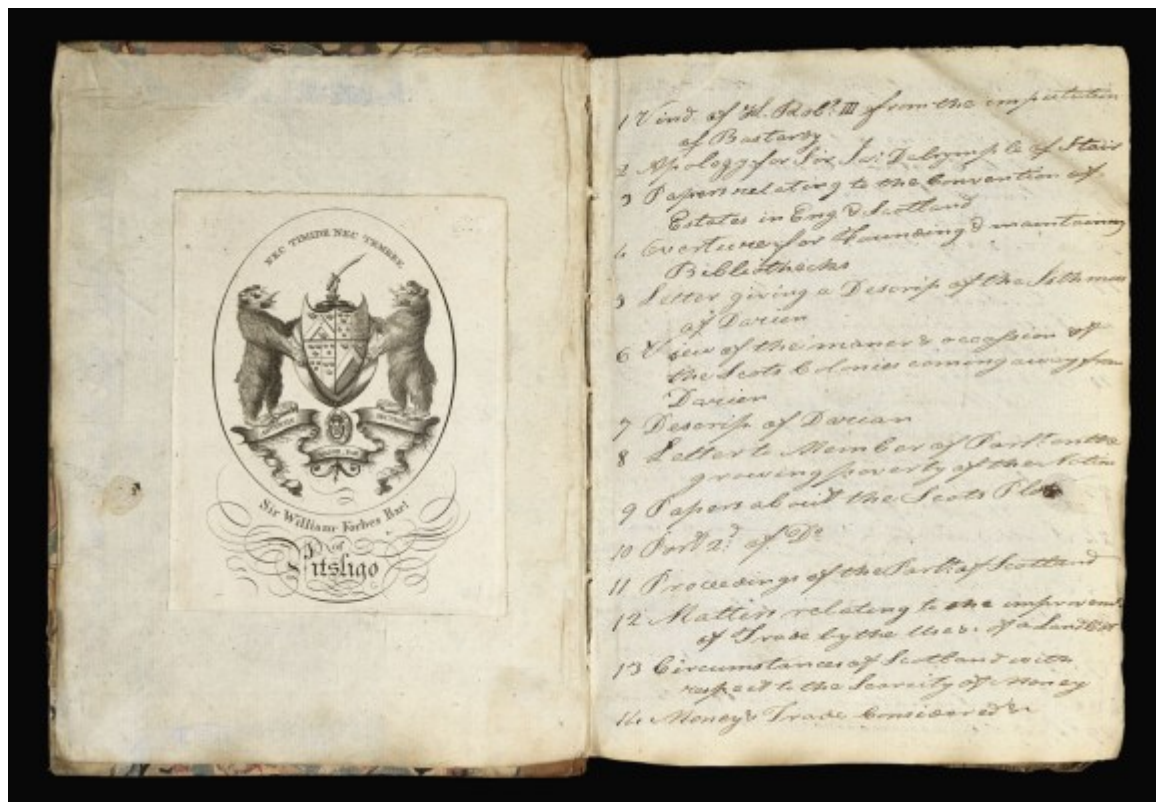 NEC TIMIDE NEC TEMERE
Sir William Forbes Bar.t
of
Pitsligo
1 Vind. of K. Rob.t III from the imputation
of Bastardy
2 Apology for Sir Ja: Dalrymple of Stair
3 Papers relating to the Convention of
Estates in Eng & Scotland
4 Overtures for Founding & maintaining
Bibliothecks
5 Letter giving a Descrip of the Isthmus
of Darien
6 View of the maner & occasion of
the Scots Colonies coming away from
Darien
7 Descrip of Darian
8 Letter to Member of Parlt. on the
growing poverty of the Nation
9 Papers about the Scots Plot
10 Part 2d. of Do
11 Proceedings of the Parlt. of Scotland
12 Matters relating to the improvemt.
of Trade by the Use of a Land
13 Circumstances of Scotland with
respect to the Scarcity of Money
14 Money & Trade Considered &